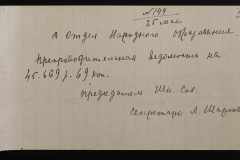 № 199
25 мая
в Отдел Народного образования
Препроводительная ведомость на
45.669 р. 69 коп.
Председатель Шк. Сов.
Секретарь Л.